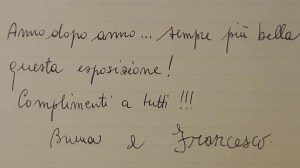 Anno dopo anno... sempre più bella
questa esposizione!
Complimenti a tutti !!!
Bruna e Francesco.